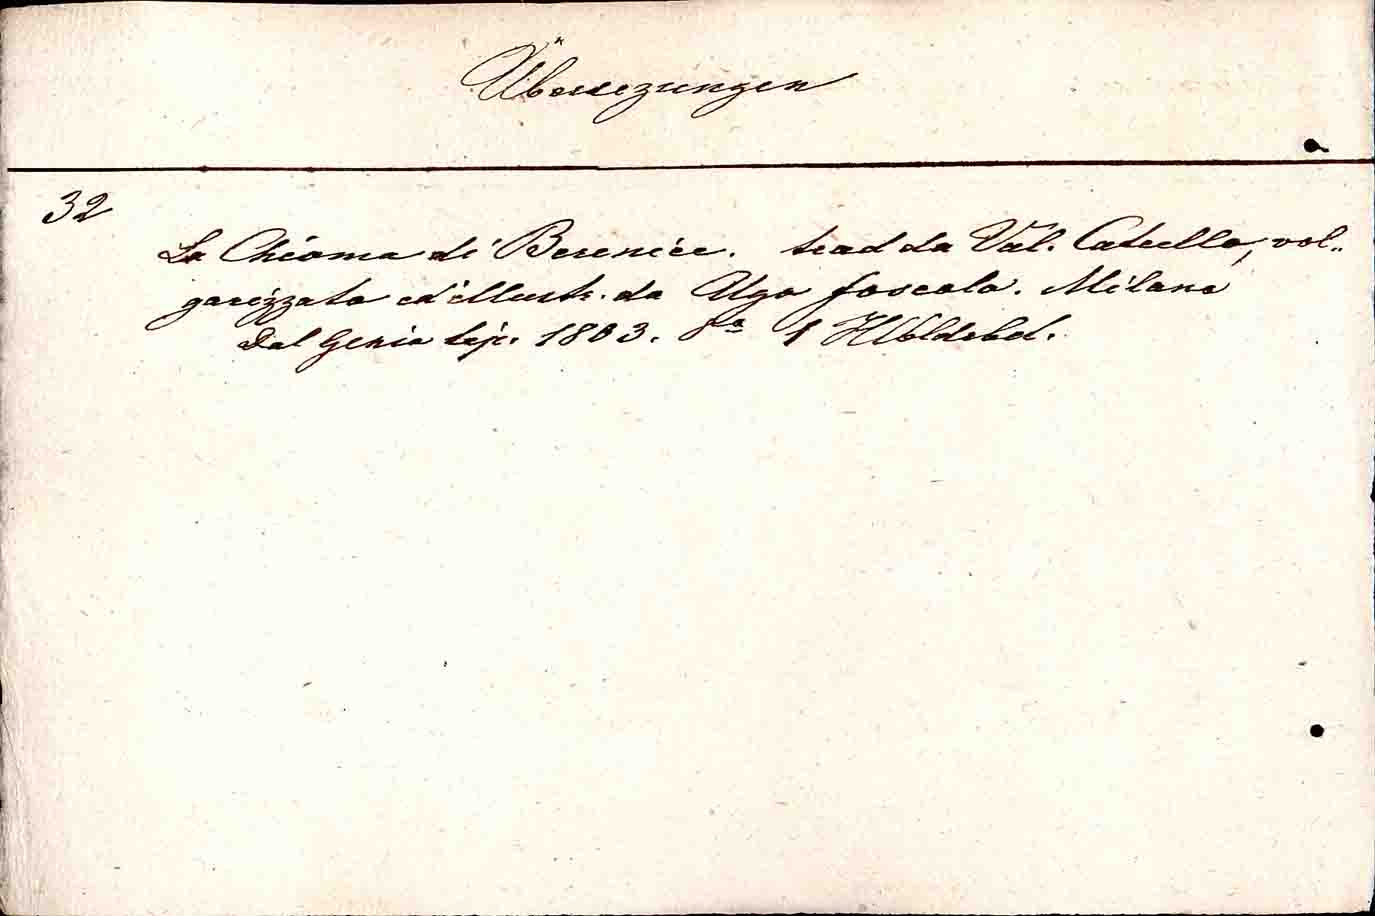 Übersezungen
32
La Chioma di Berenice. trad da Val. Catullo, vol..
garizzato ed illustr. da Ugo foscolo. Milano
Dal Genio tip. 1803. 8° 1